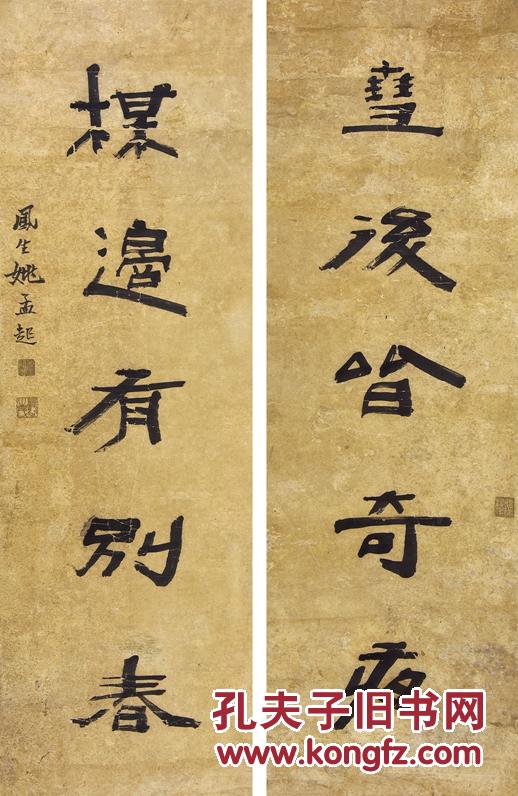 彗後皆奇夜
楳邊有別春
鳳生姚孟起
孔夫子旧书网
www.kongfz.com